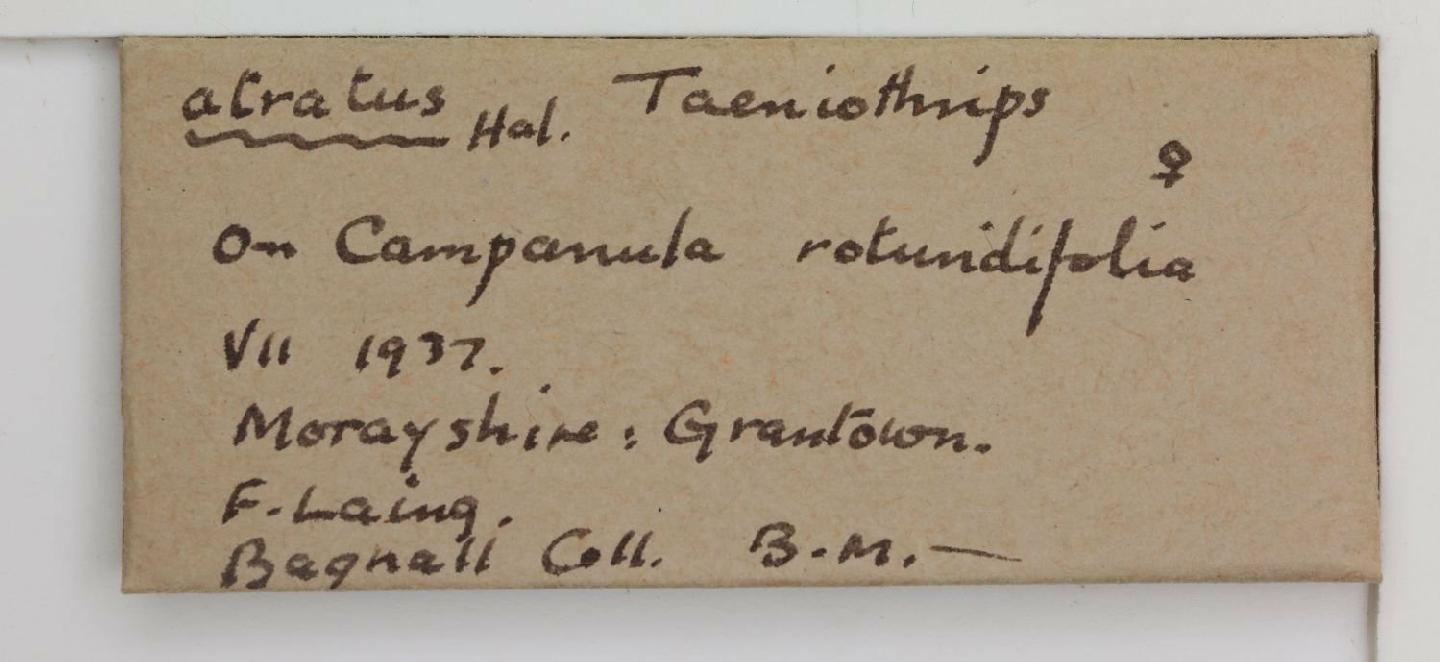 atratus Hal. Taeniothrips
♀
on Campanula rotundifolia
VII 1937.
Morayshire: Grantown.
F. Laing.
Bagnall Coll. B.M. —